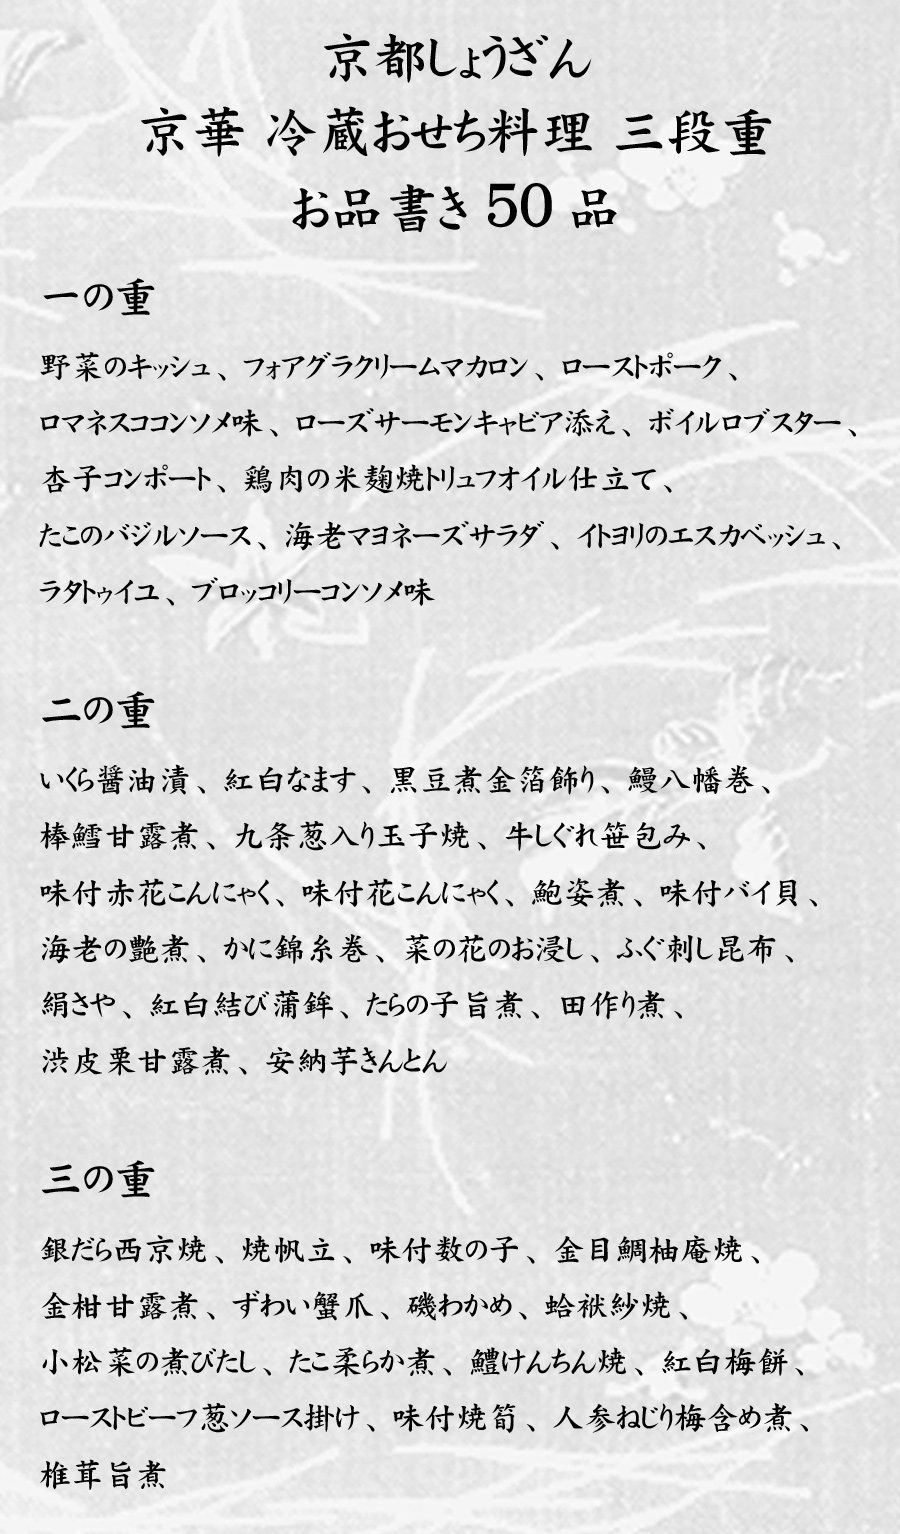 京都しょうざん
京華 冷蔵おせち料理 三段重
お品書き 50 品
一の重
野菜のキッシュ、フォアグラクリームマカロン、ローストポーク、
ロマネスココンソメ味、ローズサーモンキャビア添え、ボイルロブスター、
杏子コンポート、鶏肉の米麹焼トリュフオイル仕立て、
たこのバジルソース、海老マヨネーズサラダ、イトヨリのエスカベッシュ、
ラタトゥイユ、ブロッコリーコンソメ味
二の重
いくら醤油漬、紅白なます、黒豆煮金箔飾り、鰻八幡巻、
棒鱈甘露煮、九条葱入り玉子焼、牛しぐれ笹包み、
味付赤花こんにゃく、味付花こんにゃく、鮑姿煮、味付バイ貝、
海老の艶煮、かに錦糸巻、菜の花のお浸し、ふぐ刺し昆布、
絹さや、紅白結び蒲鉾、たらの子旨煮、田作り煮、
渋皮栗甘露煮、安納芋きんとん
三の重
銀だら西京焼、焼帆立、味付数の子、金目鯛柚庵焼、
金柑甘露煮、ずわい蟹爪、磯わかめ、蛤袱紗焼、
小松菜の煮びたし、たこ柔らか煮、鱧けんちん焼、紅白梅餅、
ローストビーフ葱ソース掛け、味付焼筍、人参ねじり梅含め煮、
椎茸旨煮